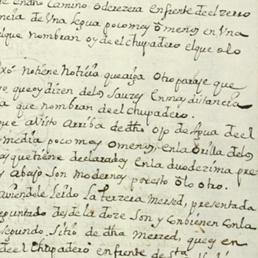 dho Camino Oderezera Enfrente del zerro
ncia de Vna Legua poco mas o menos en Vna
que nombran oy de el chupadero el que olo
dixo No tiene Noticia que aiga Otro paraje que
que oy dizen delos Sauzes En mas distancia
a que nombran de el chupadero.
que a Visto Arriba de dho Ojo de Agua de el
media poco mas o menos, en la Orilla delos
y que tiene declarados En la duodezima pre
y Abajo son modernos, por esto o lo otro.
auiendole Leido La terzera Merzed, presentada
epuntado desde la doze Son y Conbienen Con la
segundo Sitio de dha Merzed, que oy en
de el Chupadero en frente de